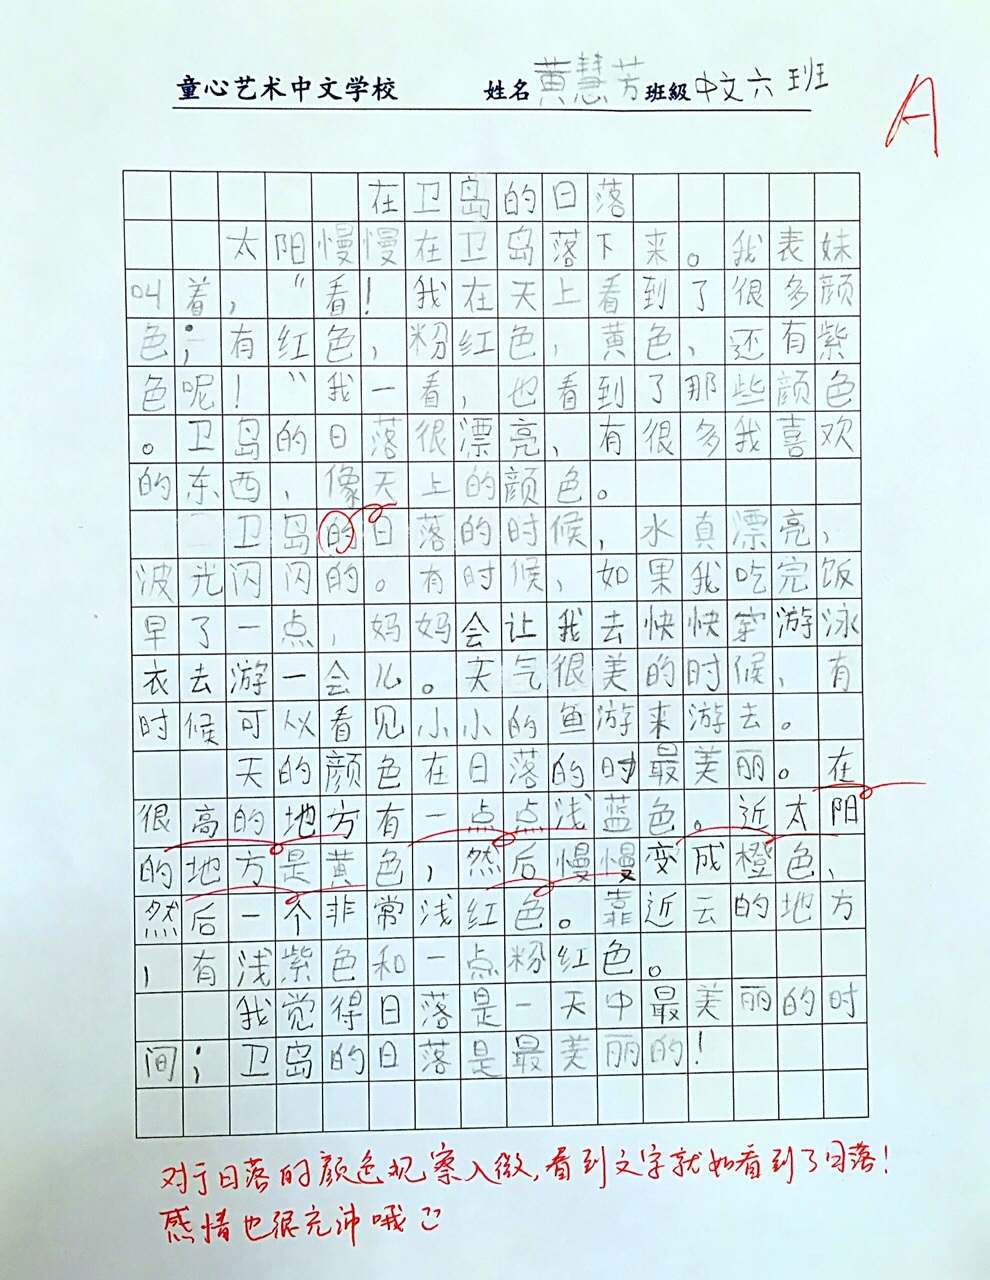 童心艺术中文学校 姓名 黄慧芳 班級 中文六班
A
在卫岛的日落
太阳慢慢在卫岛落下来。我表妹
叫着，“看！我在天上看到了很多颜
色；有红色，粉红色，黄色，还有紫
色呢！”我一看，也看到了那些颜色
。卫岛的日落很漂亮，有很多我喜欢
的东西，像天上的颜色。
卫岛的日落的时候，水真漂亮，
波光闪闪的。有时候，如果我吃完饭
早了一点，妈妈会让我去快快穿游泳
衣去游一会儿。天气很美的时候，有
时候可以看见小小的鱼游来游去。
天的颜色在日落的时最美丽。在
很高的地方有一点点浅蓝色。近太阳
的地方是黄色，然后慢慢变成橙色，
然后一个非常浅红色。靠近云的地方
，有浅紫色和一点粉红色。
我觉得日落是一天中最美丽的时
间；卫岛的日落是最美丽的！
对于日落的颜色观察入微，看到文字就如看到了日落！
感情也很充沛哦